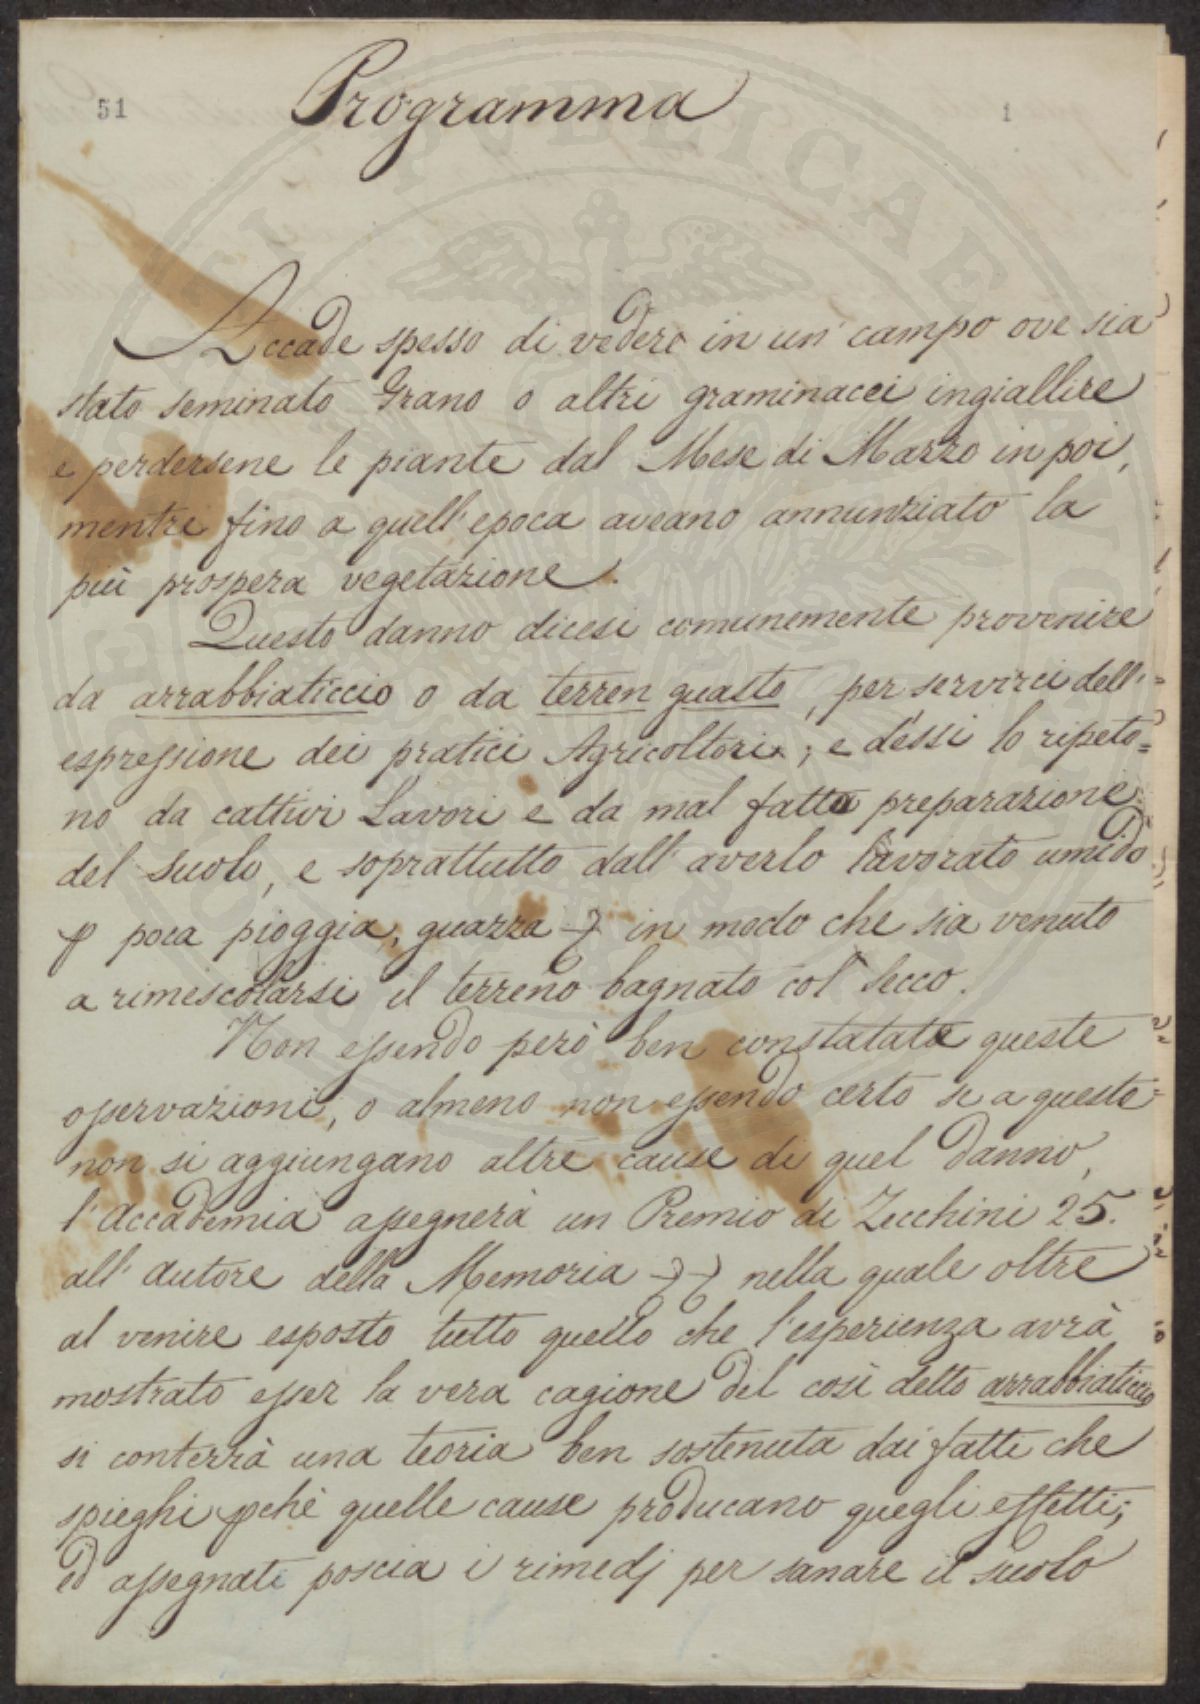 51
1
Programma
Accade spesso di vedere in un' campo ove sia
stato seminato Grano o altri graminacei ingiallire
e perdersene le piante dal Mese di Marzo in poi,
mentre fino a quell'epoca aveano annunziato la
più prospera vegetazione.
Questo danno dicesi comunemente provenire
da arrabbiaticcio o da terren guasto, per servirci dell'
espressione dei pratici Agricoltori; e d'essi lo ripeto=
no da cattivi Lavori e da mal fatta preparazione
del Suolo, e soprattutto dall'averlo lavorato umido
p poca pioggia, guazza in modo che sia venuto
a rimescolarsi il terreno bagnato col secco.
Non essendo però ben constatate queste
osservazioni, o almeno non essendo certo se a queste
non si aggiungano altre cause di quel danno,
l'Accademia assegnerà un Premio di Zecchini 25.
all'Autore della Memoria nella quale oltre
al venire esposto tutto quello che l'esperienza avrà
mostrato esser la vera cagione del così detto arrabbiaticcio
si conterrà una teoria ben sostenuta dai fatti che
spieghi pchè quelle cause producano quegli effetti;
ed assegnati poscia i rimedj per sanare il suolo